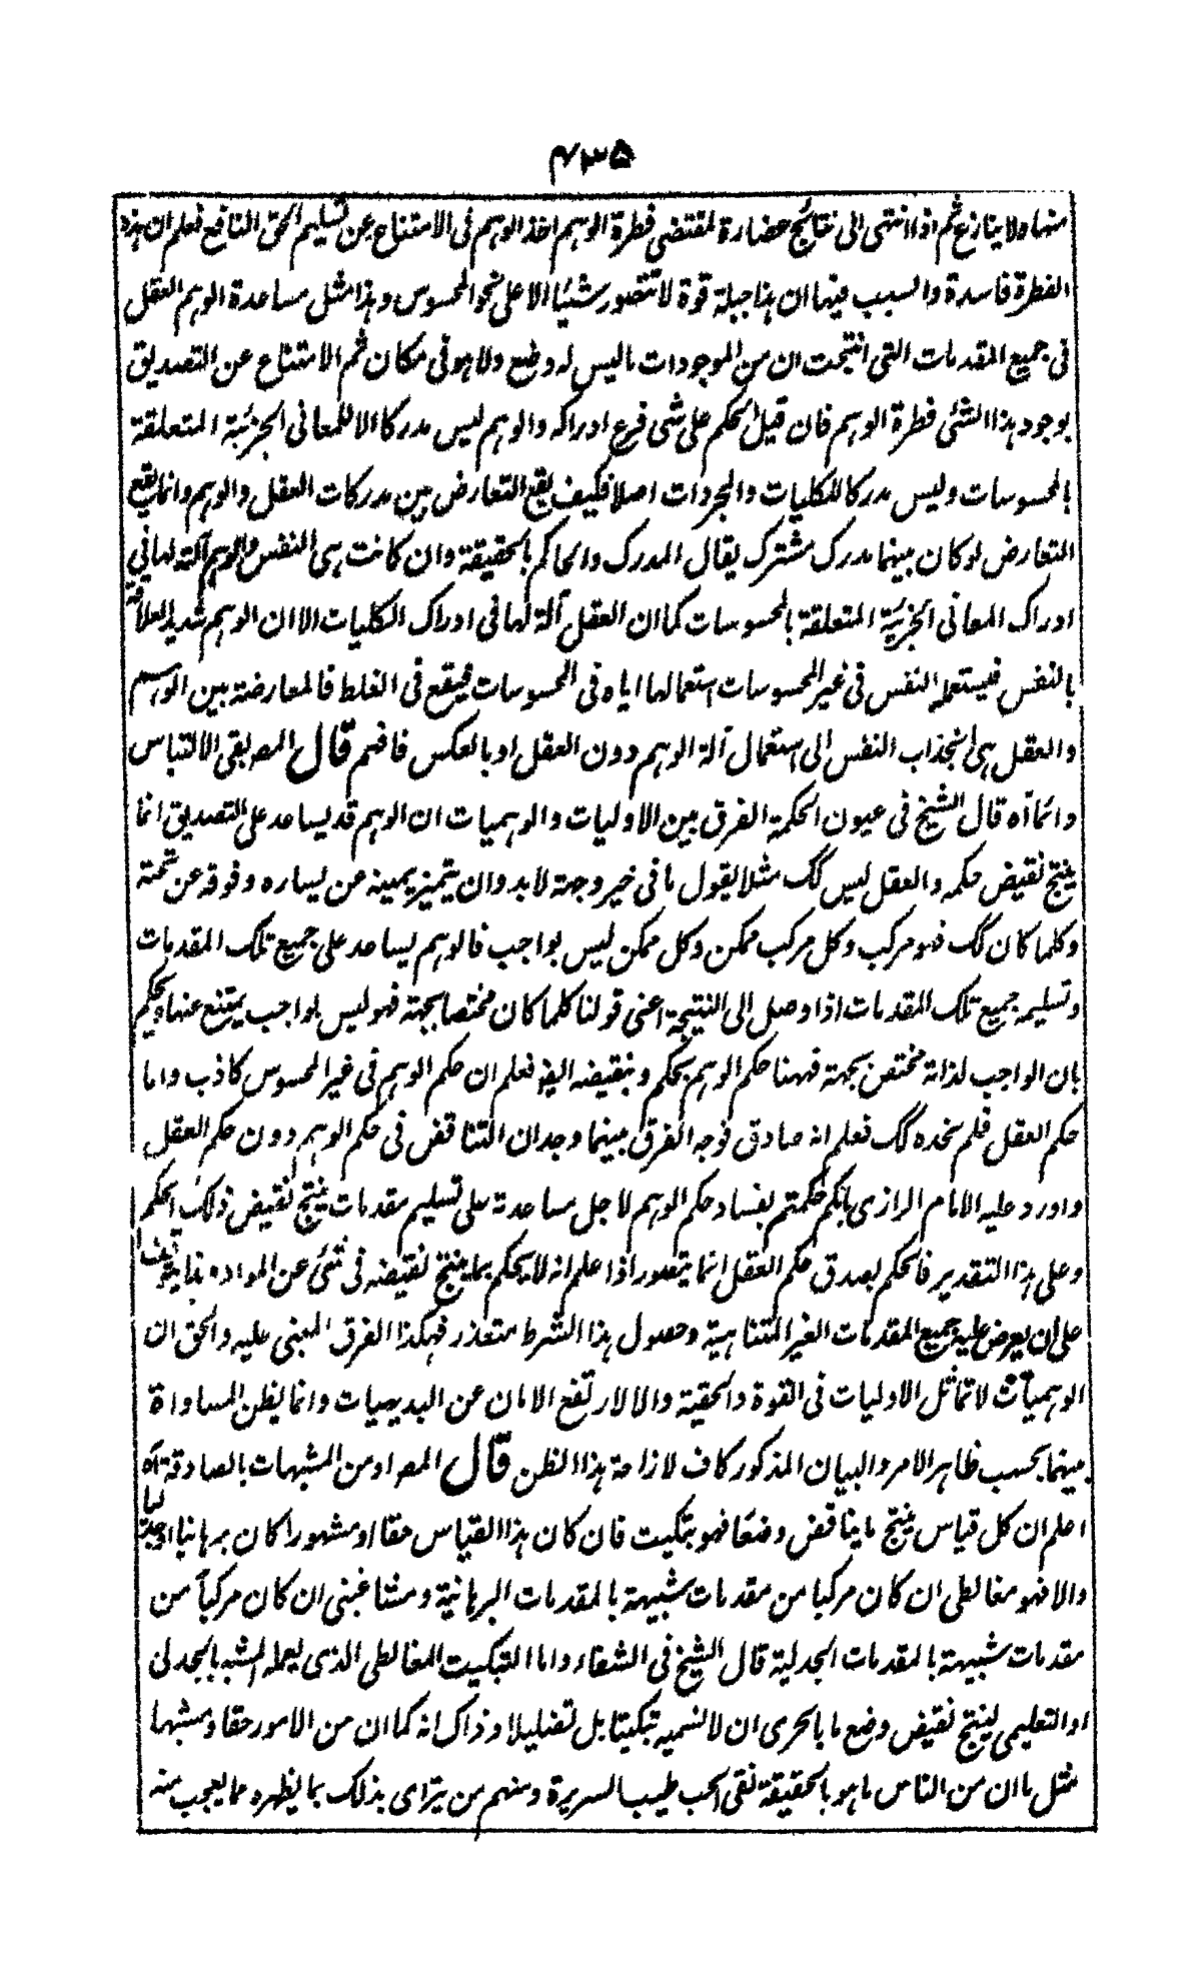 ۴۳۵
منها ولا ينازع ثم اذا انتهى الى نتائج مضارة لمقتضى فطرة الوهم اخذ الوهم فى الامتناع عن تسليم الحق النافع فعلم ان هذه
الفطرة فاسدة والسبب فيها ان هذا جبلة قوة لا تتصور شيئا الا على نحو المحسوس وهذا مثل مساعدة الوهم العقل
فى جميع المقدمات التى انتجت ان من الموجودات ما ليس له وضع ولا هو فى مكان ثم الامتناع عن التصديق
بوجود هذا الشئ فطرة الوهم فان قيل الحكم على شى فرع ادراكه والوهم ليس مدركا الا للمعانى الجزئية المتعلقة
بالمحسوسات وليس مدركا للكليات والمجردات اصلا فكيف يقع التعارض بين مدركات العقل والوهم وانما يقع
التعارض لو كان بينهما مدرك مشترك يقال المدرك والحاكم بالحقيقة وان كانت هى النفس والوهم آلة لها فى
ادراك المعانى الجزئية المتعلقة بالمحسوسات كما ان العقل آلة لها فى ادراك الكليات الا ان الوهم شديد العلاقة
بالنفس فيستعمله النفس فى غير المحسوسات استعمالها اياه فى المحسوسات فيقع فى الغلط فالمعارضة بين الوهم
والعقل هى انجذاب النفس الى استعمال آلة الوهم دون العقل او بالعكس فافهم قال المص بقى الالتباس
دائما آه قال الشيخ فى عيون الحكمة الفرق بين الاوليات والوهميات ان الوهم قد يساعد على التصديق انما
ينتج نقيض حكمه والعقل ليس كك مثلا يقول ما فى خير وجهة لابد وان يتميز يمينه عن يساره وفوقه عن تحته
وكلما كان كك فهو مركب وكل مركب ممكن وكل ممكن ليس بواجب فالوهم يساعد على جميع تلك المقدمات
وتسليمه جميع تلك المقدمات اذا وصل الى النتيجة اعنى قولنا كلما كان مختصا بجهة فهو ليس بواجب يمتنع عنها ويحكم
بان الواجب لذاته مختص بجهة فههنا حكم الوهم بحكم وبنقيضه ايضا فعلم ان حكم الوهم فى غير المحسوس كاذب واما
حكم العقل فلم نجده كك فعلم انه صادق فوجه الفرق بينهما وجدان التناقض فى حكم الوهم دون حكم العقل
واورد عليه الامام الرازى بانكم حكمتم بفساد حكم الوهم لاجل مساعدته على تسليم مقدمات ينتج نقيض ذلك الحكم
وعلى هذا التقدير فالحكم بصدق حكم العقل انما يتصور اذا علم انه لا يحكم بما ينتج نقيضه فى شئ عن المواد وهذا يتوقف
على ان يعرض عليه جميع المقدمات الغير المتناهية وحصول هذا الشرط متعذر فهكذا الفرق المبنى عليه والحق ان
الوهميات لا تماثل الاوليات فى القوة والحقية والا لارتفع الامان عن البديهيات وانما يظن المساواة
بينهما بحسب ظاهر الامر والبيان المذكور كاف لازاحة هذا الظن قال المص او من المشبهات بالصادقة آه
اعلم ان كل قياس ينتج ما يناقض وضعا فهو تبكيت فان كان هذا القياس حقا او مشهورا كان برهانيا او جدليا
والا فهو مغالطى ان كان مركبا من مقدمات شبيهة بالمقدمات البرهانية ومشاغبى ان كان مركبا من
مقدمات شبيهة بالمقدمات الجدلية قال الشيخ فى الشفاء واما التبكيت المغالطى الذى يعمله المشبه بالجدلى
او التعليمى لينتج نقيض وضع ما بالحرى ان لا نسميه تبكيتا بل تضليلا وذاك انه كما ان من الامور حقا ومشبها
مثل ما ان من الناس ما هو بالحقيقة نقى الحب طيب السريرة ومنهم من يترأى بذلك بما يظهره مما يعجب منه